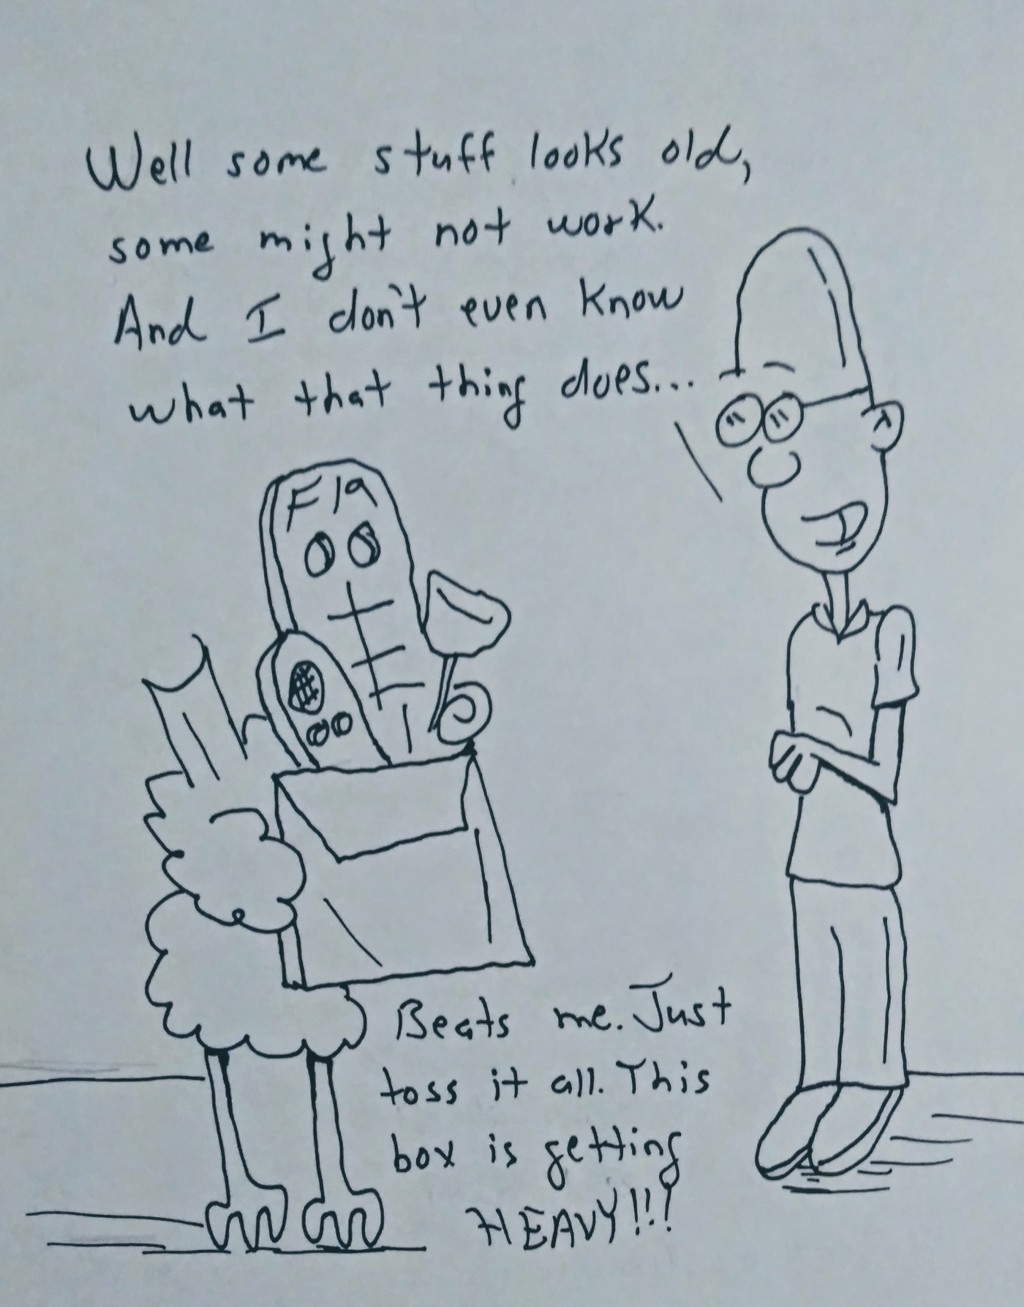 Well some stuff looks old,
some might not work.
And I don't even know
what that thing does...
Fla
Beats me. Just
toss it all. This
box is getting
HEAVY!!!